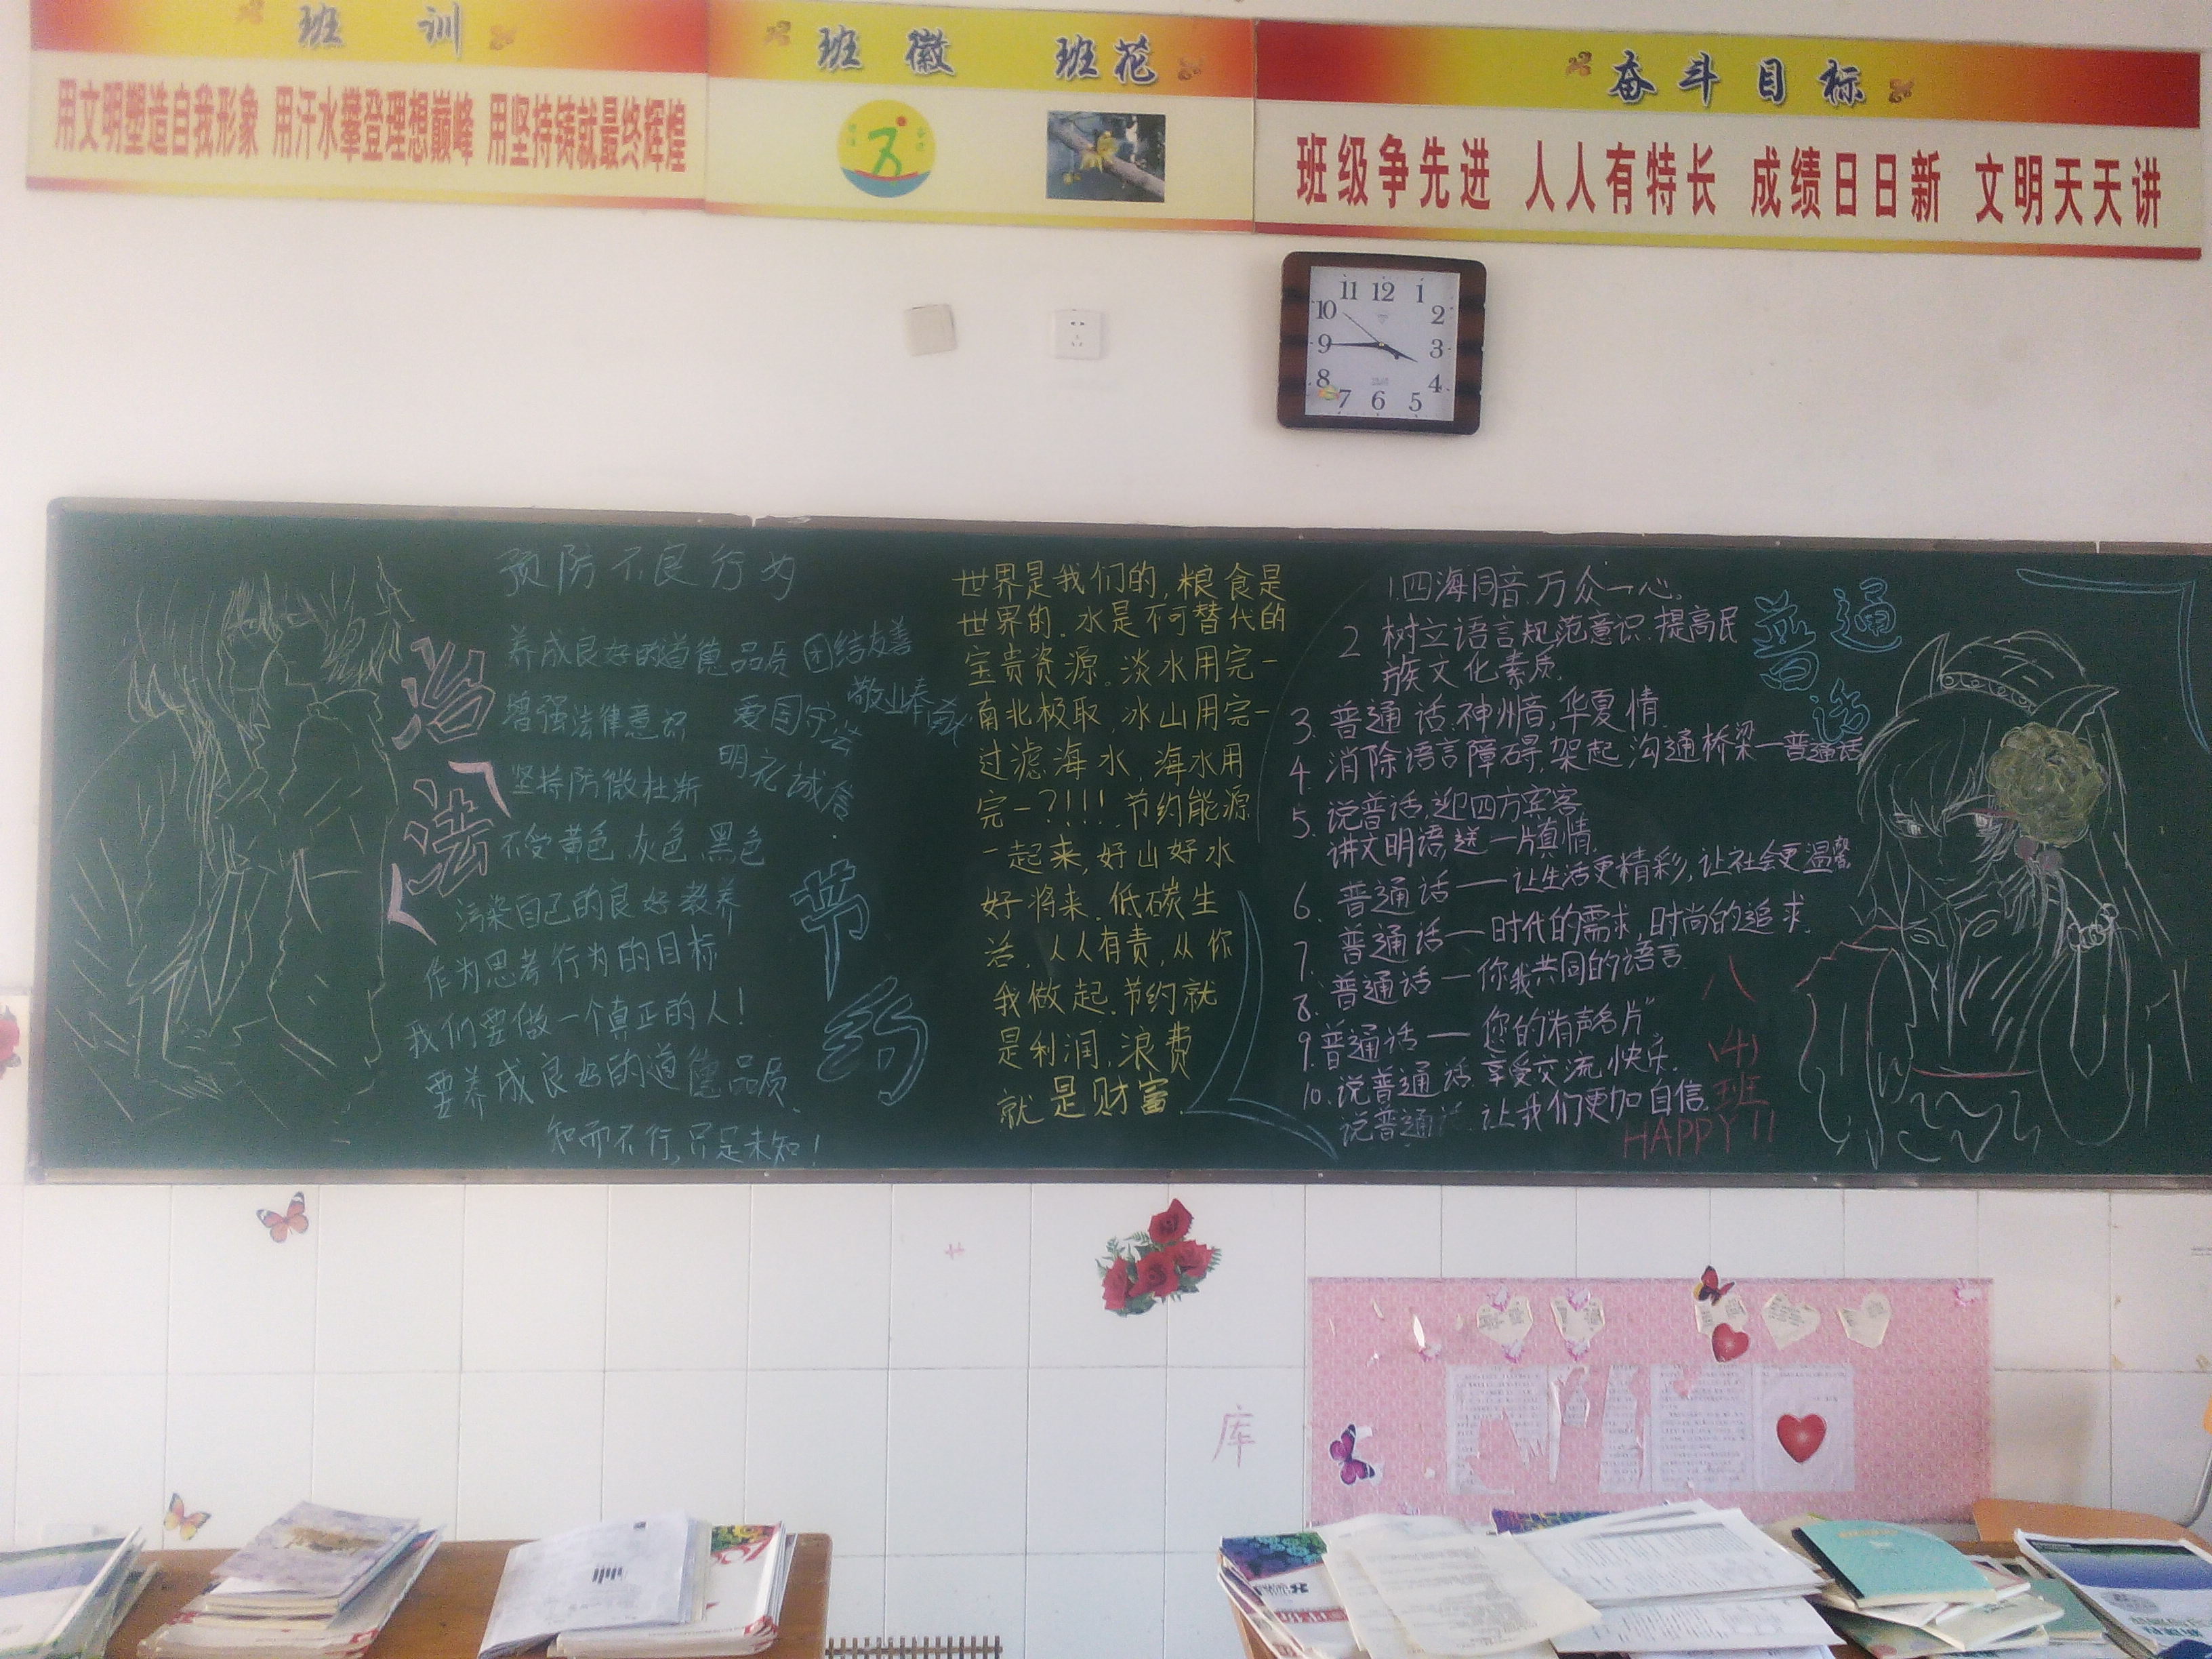 班 训
用文明塑造自我形象 用汗水攀登理想巅峰 用坚持铸就最终辉煌
班 徽 班花
奋斗目标
班级争先进 人人有特长 成绩日日新 文明天天讲
11 12 1
10 2
9 3
8 4
7 6 5
预防不良行为
养成良好的道德品质 团结友善
增强法律意识 爱国守法 敬业奉献
坚持防微杜渐 明礼诚信
不受黄色 灰色 黑色
污染自己的良好教养
作为思考行为的目标
我们要做一个真正的人!
要养成良好的道德品质、
知而不行,只是未知!
法
节
约
世界是我们的,粮食是
世界的.水是不可替代的
宝贵资源.淡水用完一
南北极取,冰山用完一
过滤海水,海水用
完一?!!!.节约能源
一起来,好山好水
好将来.低碳生
活,人人有责,从你
我做起.节约就
是利润,浪费
就是财富.
普通
话
1.四海同音.万众一心.
2 树立语言规范意识.提高民
族文化素质.
3. 普通话.神州音,华夏情.
4. 消除语言障碍,架起沟通桥梁一普通话
5. 说普通话,迎四方宾客.
讲文明语,送一片真情.
6. 普通话——让生活更精彩,让社会更温馨
7. 普通话—时代的需求,时尚的追求.
8. 普通话—你我共同的语言.
9. 普通话—您的"有声名片"
10. 说普通话.享受交流快乐.
说普通话.让我们更加自信.
八
(4)
班
HAPPY!!
库